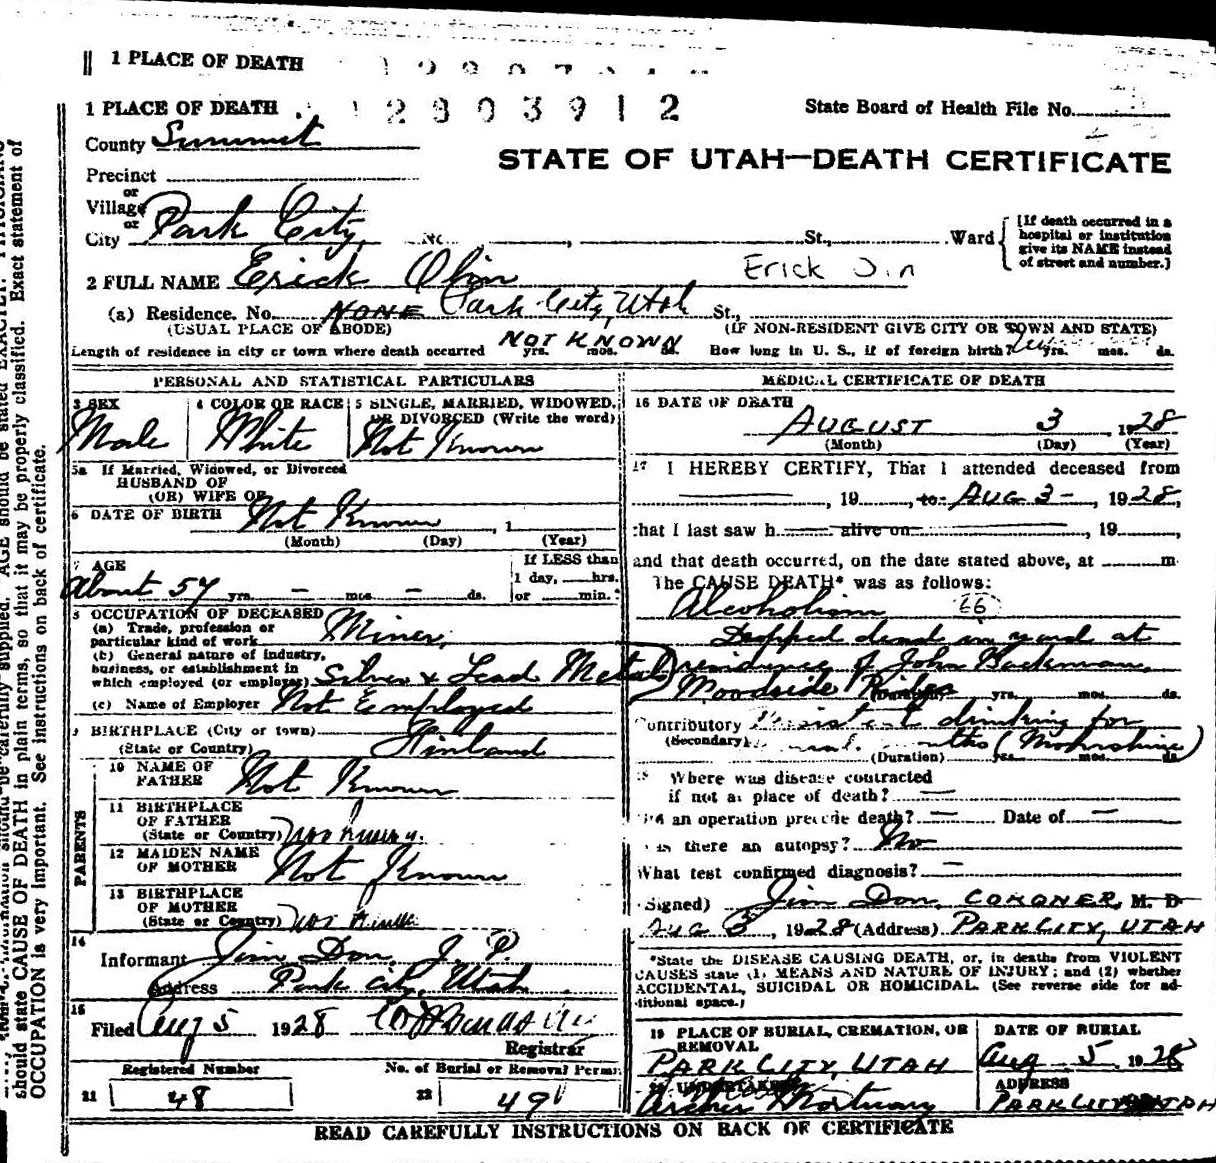 1 PLACE OF DEATH
1 PLACE OF DEATH 12803912 State Board of Health File No.
County Summit
STATE OF UTAH—DEATH CERTIFICATE
Precinct
or
Village
or
City Park City, No. , St., Ward
[If death occurred in a
hospital or institution
give its NAME instead
of street and number.]
2 FULL NAME Erick Olin Erick
(a) Residence. No. NONE Park City, Utah St.,
(USUAL PLACE OF ABODE) (IF NON-RESIDENT GIVE CITY OR TOWN AND STATE)
Length of residence in city or town where death occurred NOT KNOWN yrs. mos. ds. How long in U. S., if of foreign birth? yrs. mos. ds.
PERSONAL AND STATISTICAL PARTICULARS
3 SEX 4 COLOR OR RACE 5 SINGLE, MARRIED, WIDOWED,
OR DIVORCED (Write the word)
Male White Not Known
5a If Married, Widowed, or Divorced
HUSBAND OF
(OR) WIFE OF
6 DATE OF BIRTH Not Known , 1
(Month) (Day) (Year)
7 AGE If LESS than
About 57 yrs. — mos. — ds. 1 day, hrs.
or min.
8 OCCUPATION OF DECEASED
(a) Trade, profession or
particular kind of work Miner,
(b) General nature of industry,
business, or establishment in
which employed (or employer) Silver & Lead Metals
(c) Name of Employer Not Employed
9 BIRTHPLACE (City or town)
(State or Country) Finland
PARENTS
10 NAME OF
FATHER Not Known
11 BIRTHPLACE
OF FATHER
(State or Country) Not Known
12 MAIDEN NAME
OF MOTHER Not Known
13 BIRTHPLACE
OF MOTHER
(State or Country) Not
14
Informant Jim Don, J. P.
Address Park City, Utah
15
Filed Aug 5 1928
Registrar
Registered Number No. of Burial or Removal Permit
21 48 22 491
MEDICAL CERTIFICATE OF DEATH
16 DATE OF DEATH
AUGUST 3 , 1928
(Month) (Day) (Year)
17 I HEREBY CERTIFY, That I attended deceased from
, 19 , to AUG 3- , 1928,
that I last saw h alive on , 19 ,
and that death occurred, on the date stated above, at m
The CAUSE DEATH* was as follows:
Alcoholism 66
Dropped dead in yard at
residence of John Backman,
Woodside
(Duration) yrs. mos. ds.
Contributory Persistent drinking for
(Secondary) months (Moonshine)
(Duration) yrs. mos. ds.
18 Where was disease contracted
if not at place of death? —
Did an operation precede death? — Date of —
Was there an autopsy? No
What test confirmed diagnosis? —
(Signed) Jim Don, CORONER, M. D
AUG 3 , 1928 (Address) PARK CITY, UTAH
*State the DISEASE CAUSING DEATH, or, in deaths from VIOLENT
CAUSES state (1) MEANS AND NATURE OF INJURY; and (2) whether
ACCIDENTAL, SUICIDAL OR HOMICIDAL. (See reverse side for ad-
ditional space.)
19 PLACE OF BURIAL, CREMATION, OR
REMOVAL DATE OF BURIAL
PARK CITY, UTAH Aug 5 1928
20 UNDERTAKER ADDRESS
Archer Mortuary PARK CITY UTAH
READ CAREFULLY INSTRUCTIONS ON BACK OF CERTIFICATE
should state CAUSE OF DEATH in plain terms, so that it may be properly classified. Exact statement of
OCCUPATION is very important. See instructions on back of certificate.